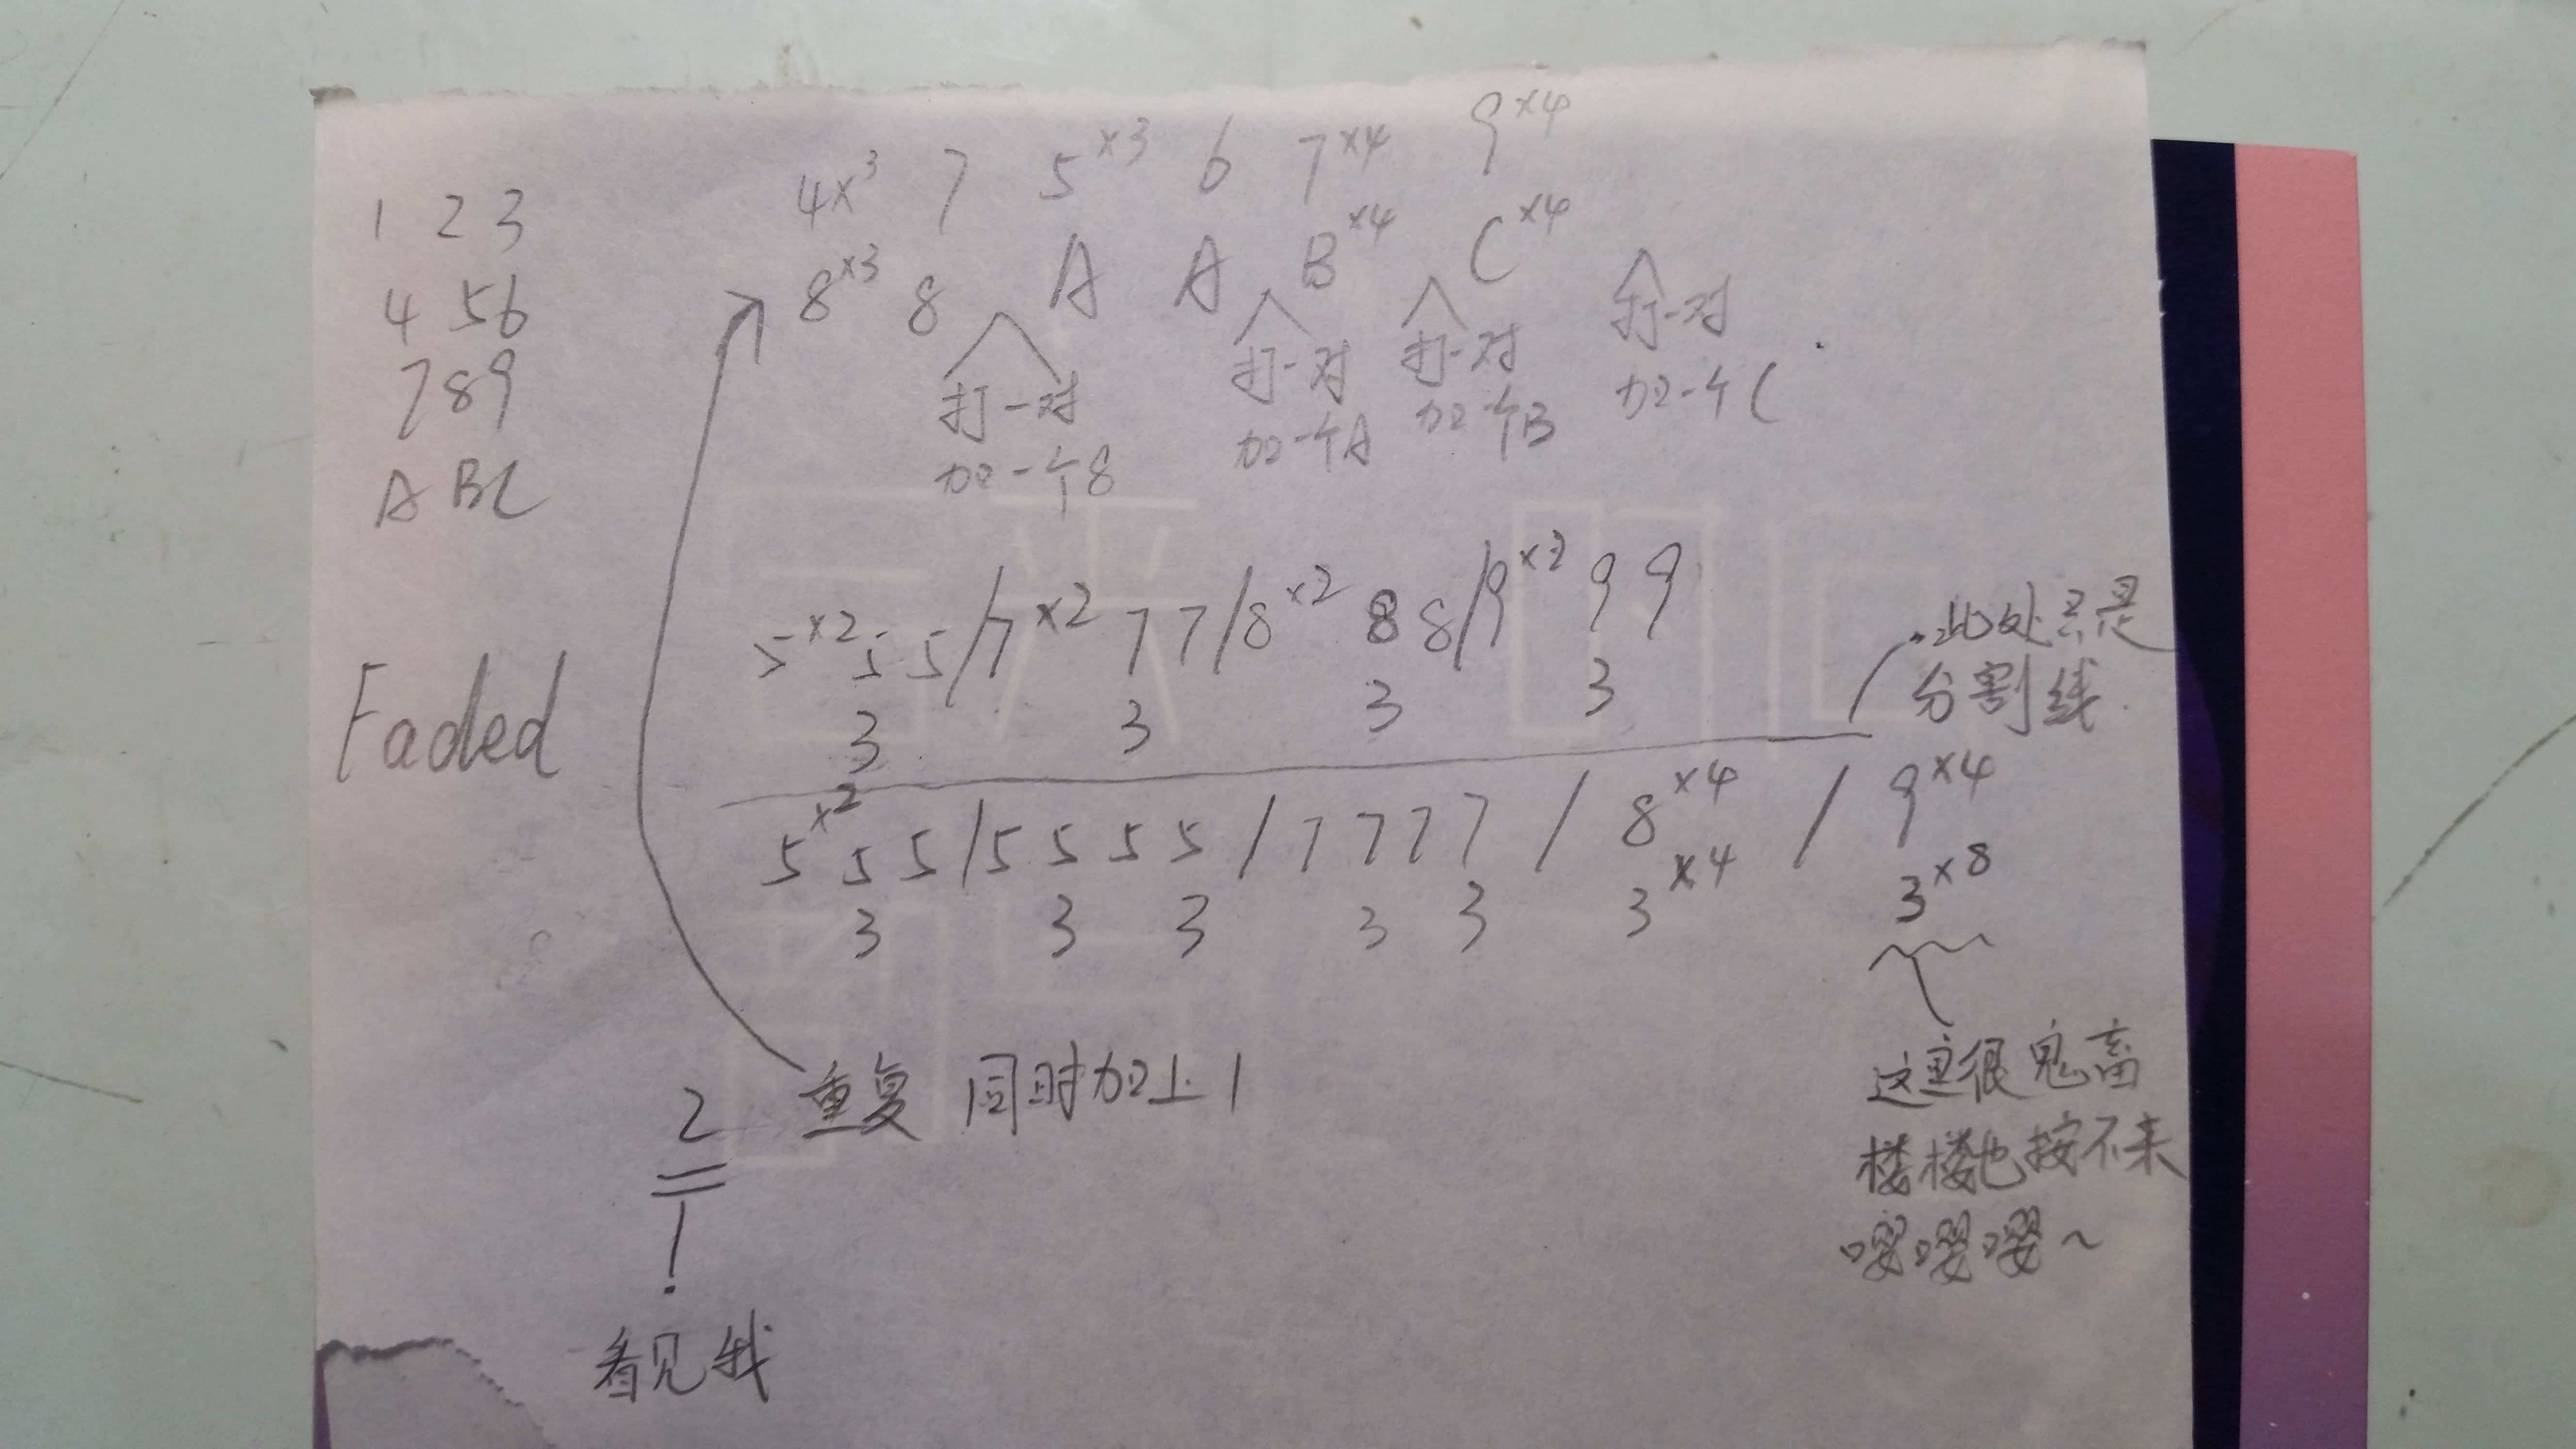 1 2 3
4 5 6
7 8 9
A B C
Faded
4×3 7 5×3 6 7×4 9×4
8×3 8 A A B×4 C×4
打一对
加一个8
打一对
加一个A
打一对
加一个B
打一对
加一个C
5×2 5 5/7×2 7 7/8×2 8 8/9×2 9 9
3 3 3 3
此处只是
分割线
5×2 5 5/5 5 5 5/7 7 7 7/8×4/9×4
3 3 3 3 3 3×4 3×8
重复 同时加上1
2
看见我
这里很鬼畜
楼楼也按不来
嘤嘤嘤~